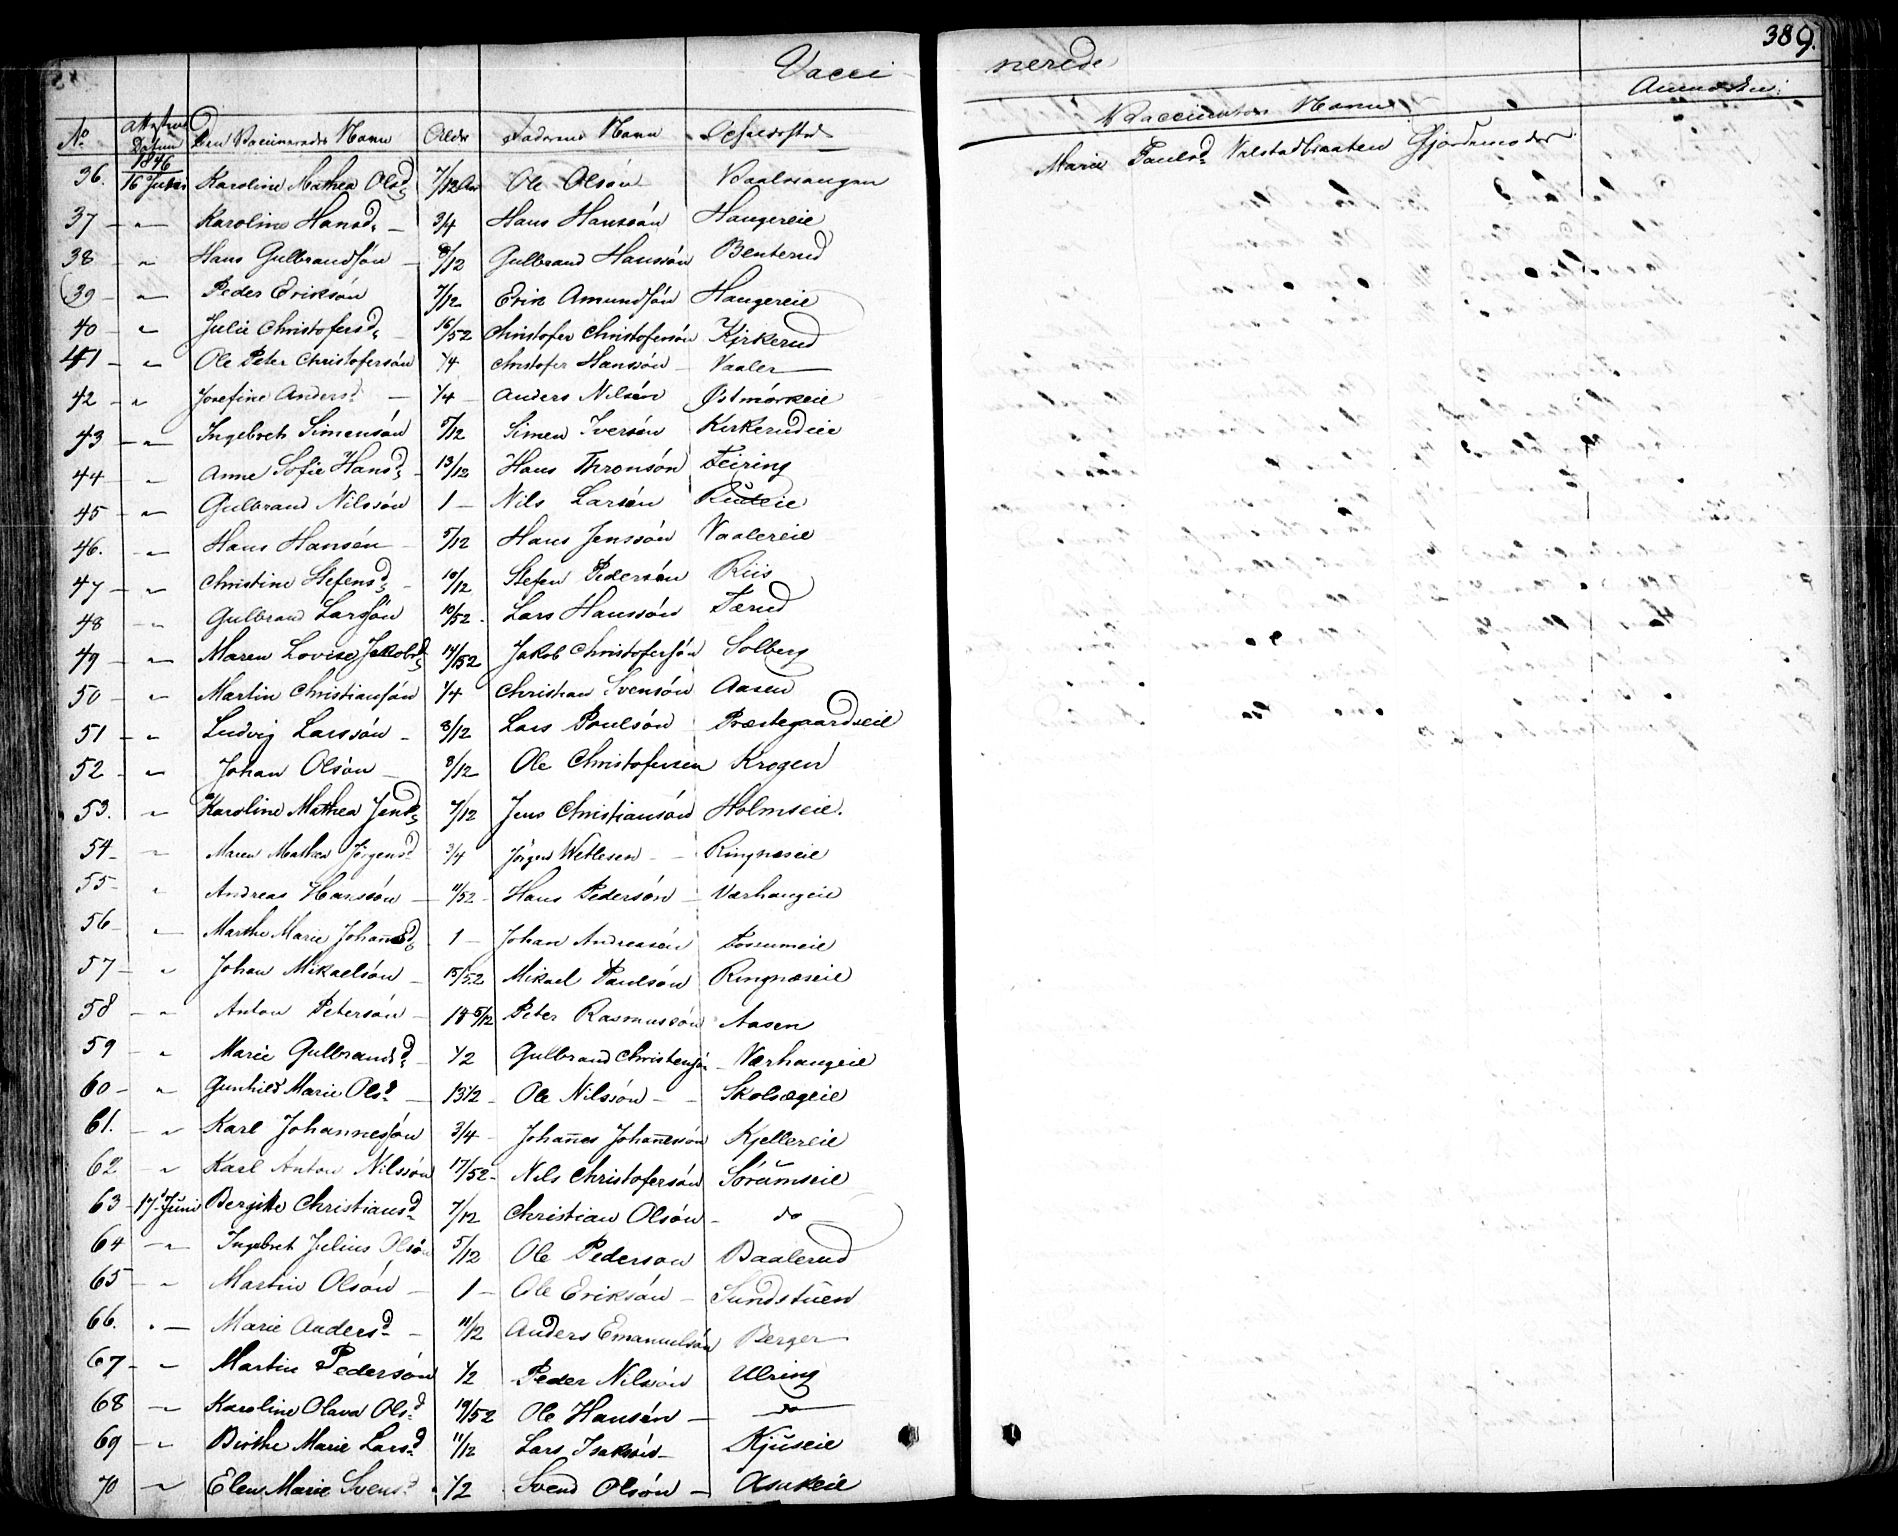 Vacci nerede 389.
No Attestens Datum Den Vaccineredes Navn Alder Faderens Navn Opholdssted Vaccinators Navn Anmærkn:
1846
36. 16 Juni Karoline Mathea Olsd. 7/12 Aar Ole Olsøn Marie Paulsd. Gjordemoder
37 — " — Karoline Hansd. — 3/4 Hans Hanssøn Haugereie
38 — " Hans Gulbrandsøn — 8/12 Gulbrand Hanssøn Benterud
39 — " — Peder Eriksøn 7/12 Erik Amundsøn Haugereie
40 — " Julie Christofersd. — 16/52 Christofer Christofersøn Kirkerud
41 — " Ole Peter Christofersøn 1/4 Christofer Hanssøn — Vaaler —
42 — " Josefine Andersd. — 1/4 — Anders Nilsøn Østmørkeie
43 — " Ingebreth Simensøn 5/12 Simen Iversøn Kirkerudeie
44 — " Anne Sofie Hansd. 13/12 Hans Thronsøn Feiring
45 — " Gulbrand Nilssøn 1 — Nils Larsøn Rudeie
46. — " Hans Hansén — 5/12 Hans Jenssøn Vaalereie
47 — " Christine Stefensd. — 10/12 Stefen Pedersøn Riis
48 — " Gulbrand Larssøn 10/52 — Lars Hanssøn Færud
49 — " Maren Lovise Jakobsd. 14/52 Jakob Christofersøn Solberg
50 — " Martin Christiansøn 1/4 Christian Svensøn Aasen
51 — " Ludvig Larssøn — 8/12 Lars Poulsøn Præstegaardseie
52 — " Johan Olsøn — 8/12 Ole Christofersen Krogen
53. — " Karoline Mathea Jensd. 7/12 Jens Christiansøn Holmseie.
54 — " Maren Mathea Jørgensd. 3/4 Jørgen Wetlesen — Ringnæseie
55 — " Andreas Hanssøn — 11/52 — Hans Pedersøn — Værhaugeie
56 — " Marthe Marie Johannesd. 1 — Johan Andreasén Fossumeie
57 — " Johan Mikaelsøn — 15/52 Mikael Paulsøn Ringnæseie
58 — " Anton Petersøn — Peter Rasmussøn Aasen
59 — " Marie Gulbrandsd. — 1/2 Gulbrand Christensøn — Værhaugeie
60 — " Gunhild Marie Olsd. — 13 1/2 — Ole Nilssøn — — Skolsægeie
61. — " Karl Johannessøn 3/4 — Johannes Johannessøn Kjellereie
62 — " Karl Anton Nilssøn 17/52 — Nils Christofersøn Sørumseie
63 — 17 Juni Bergitte Christiansd. 7/12 Christian Olsøn — do
64 — " Ingebret Julius Olsøn 5/12 Ole Pederson Baalerud
65 — " Martin Olsøn — 1 — Ole Eriksøn — Sundstuen
66. " — Marie Andersd. — 11/12 Anders Emanuelsøn Berger
67 — " Martin Pedersøn 1/2 Peder Nilssøn Ulring
68 — " Karoline Olava Olsd. 19/52 Ole Hansén — do
69 — " Birthe Marie Larsd. 11/12 Lars Isaksøn — Kjuseie
70 — " Elen Marie Svensd. 1/2 Svend Olsøn — Askeie